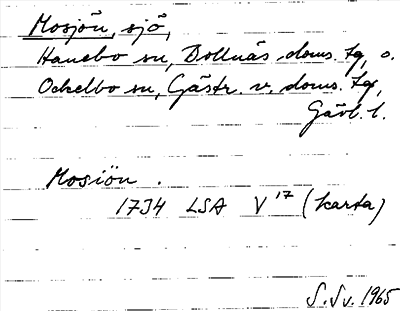 Mosjön, sjö,
Hanebo sn, Bollnäs doms. tg, o.
Ockelbo sn, Gästr. v. doms. tg,
Gävl. l.
Mosiön.
1734 LSA V 17 (karta)
S. Sv. 1965